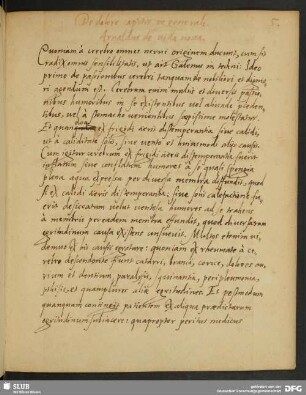 De dolore capitis in generali.
Arnaldus de villa nova.
5.
Quoniam à cerebro omnes nervi originem ducunt, cum sit
radix omnis sensibilitatis, ut ait Galenus in techni: Ideo
primo de passionibus cerebri tanquam de nobiliori et dignio
ri agendum est. Cerebrum enim multis et diversis passio
nibus humoribus in se existentibus vel abunde pleden
tibus, vel à stomacho venientibus sæpissime molestatur.
Et quandoque ex frigidi aeris distemperantia sive calidi,
ut à caliditate solis, sive vento et huiusmodi alijs causis.
Cum igitur cerebrum ex frigidi aeris distemperantia fuerit
inflatum, sive constipatum humores à se quasi spongia
plena aqua expressa per diversa membra diffundit, quod
si ex calidi aeris distemperantia, sive solis calefactione fu
erit desiccatum velut ventosa humores ad se trahens
à membris praecordia membra effundit, quod diversarum
aegritudinum causa existere consuevit. Multas etenim vi
demus ex his causis existere: quoniam ex rheumate à ce
rebro descendente fiunt catarri, branci, coriza, dolores au
rium et dentium, paralysis, squinantia, peripleumonia,
phthisis, et quamplures aliæ aegritudines. Et postmodum
quamquam contingit patientem ex aliqua praedictarum
aegritudinum subiacere: quapropter peritus medicus
SLUB
Wir führen Wissen.
gefördert von der
Deutschen Forschungsgemeinschaft
DFG